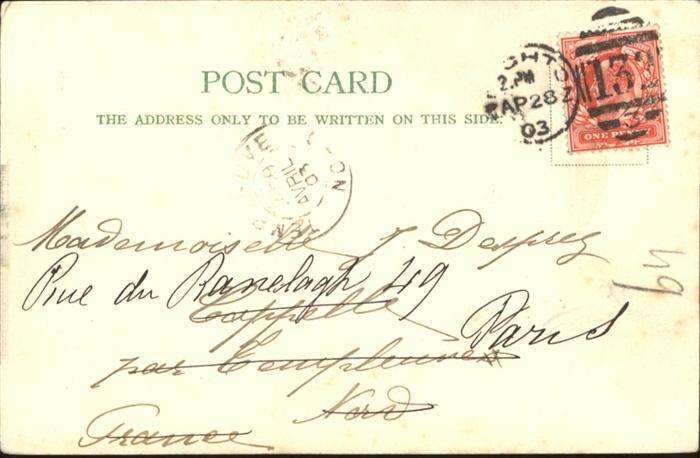 POST CARD
THE ADDRESS ONLY TO BE WRITTEN ON THIS SIDE.
2. PM
AP 28
03
132
3
ONE PENNY
AVRIL
03
Mademoiselle J Desprez
Rue du Ranelagh 49
Cappelle
Paris
par Templeuve
Nord
France